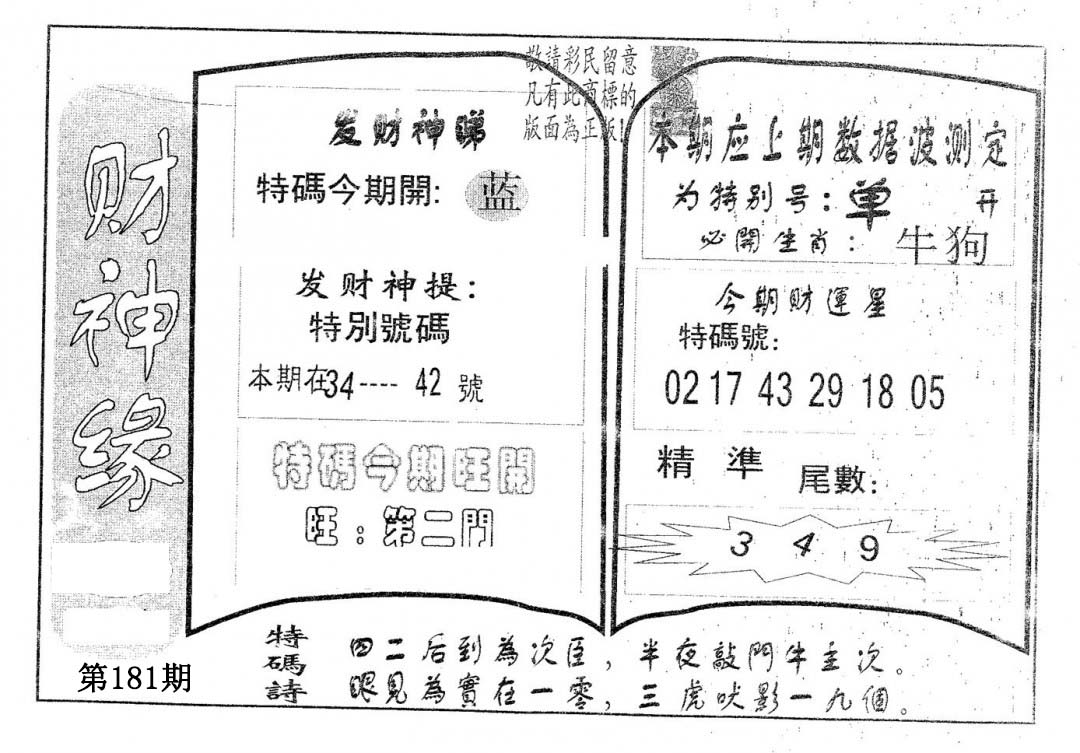 财神缘
第181期
敬請彩民留意
凡有此商標的
版面為正版!
发财神睇
特碼今期開: 蓝
发财神提:
特別號碼
本期在34---- 42 號
特碼今期旺開
旺:第二門
本期应上期数据波测定
为特别号:单 开
必開生肖: 牛狗
今期財運星
特碼號:
02 17 43 29 18 05
精準 尾數:
3 4 9
特碼詩
四二后到為次臣,半夜敲門牛主次。
眼見為實在一零,三虎吠影一九個。